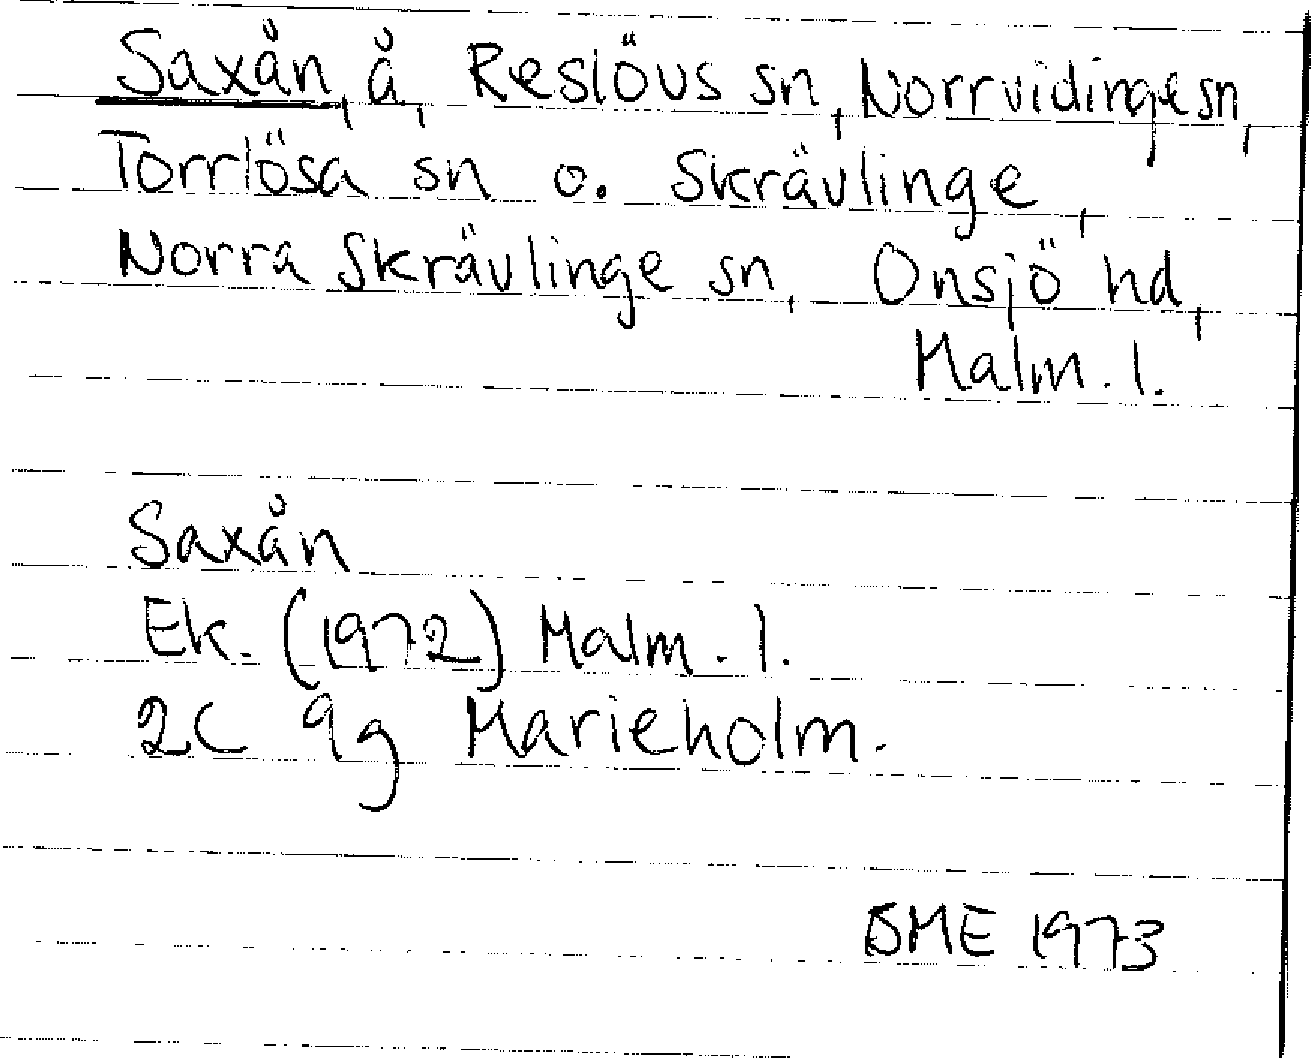 Saxån, å, Reslövs sn, Norrvidinge sn,
Torrlösa sn o. Skrävlinge,
Norra Skrävlinge sn, Onsjö hd,
Malm. l.
Saxån
Ek. (1972) Malm. l.
2C 9g Marieholm.
BME 1973